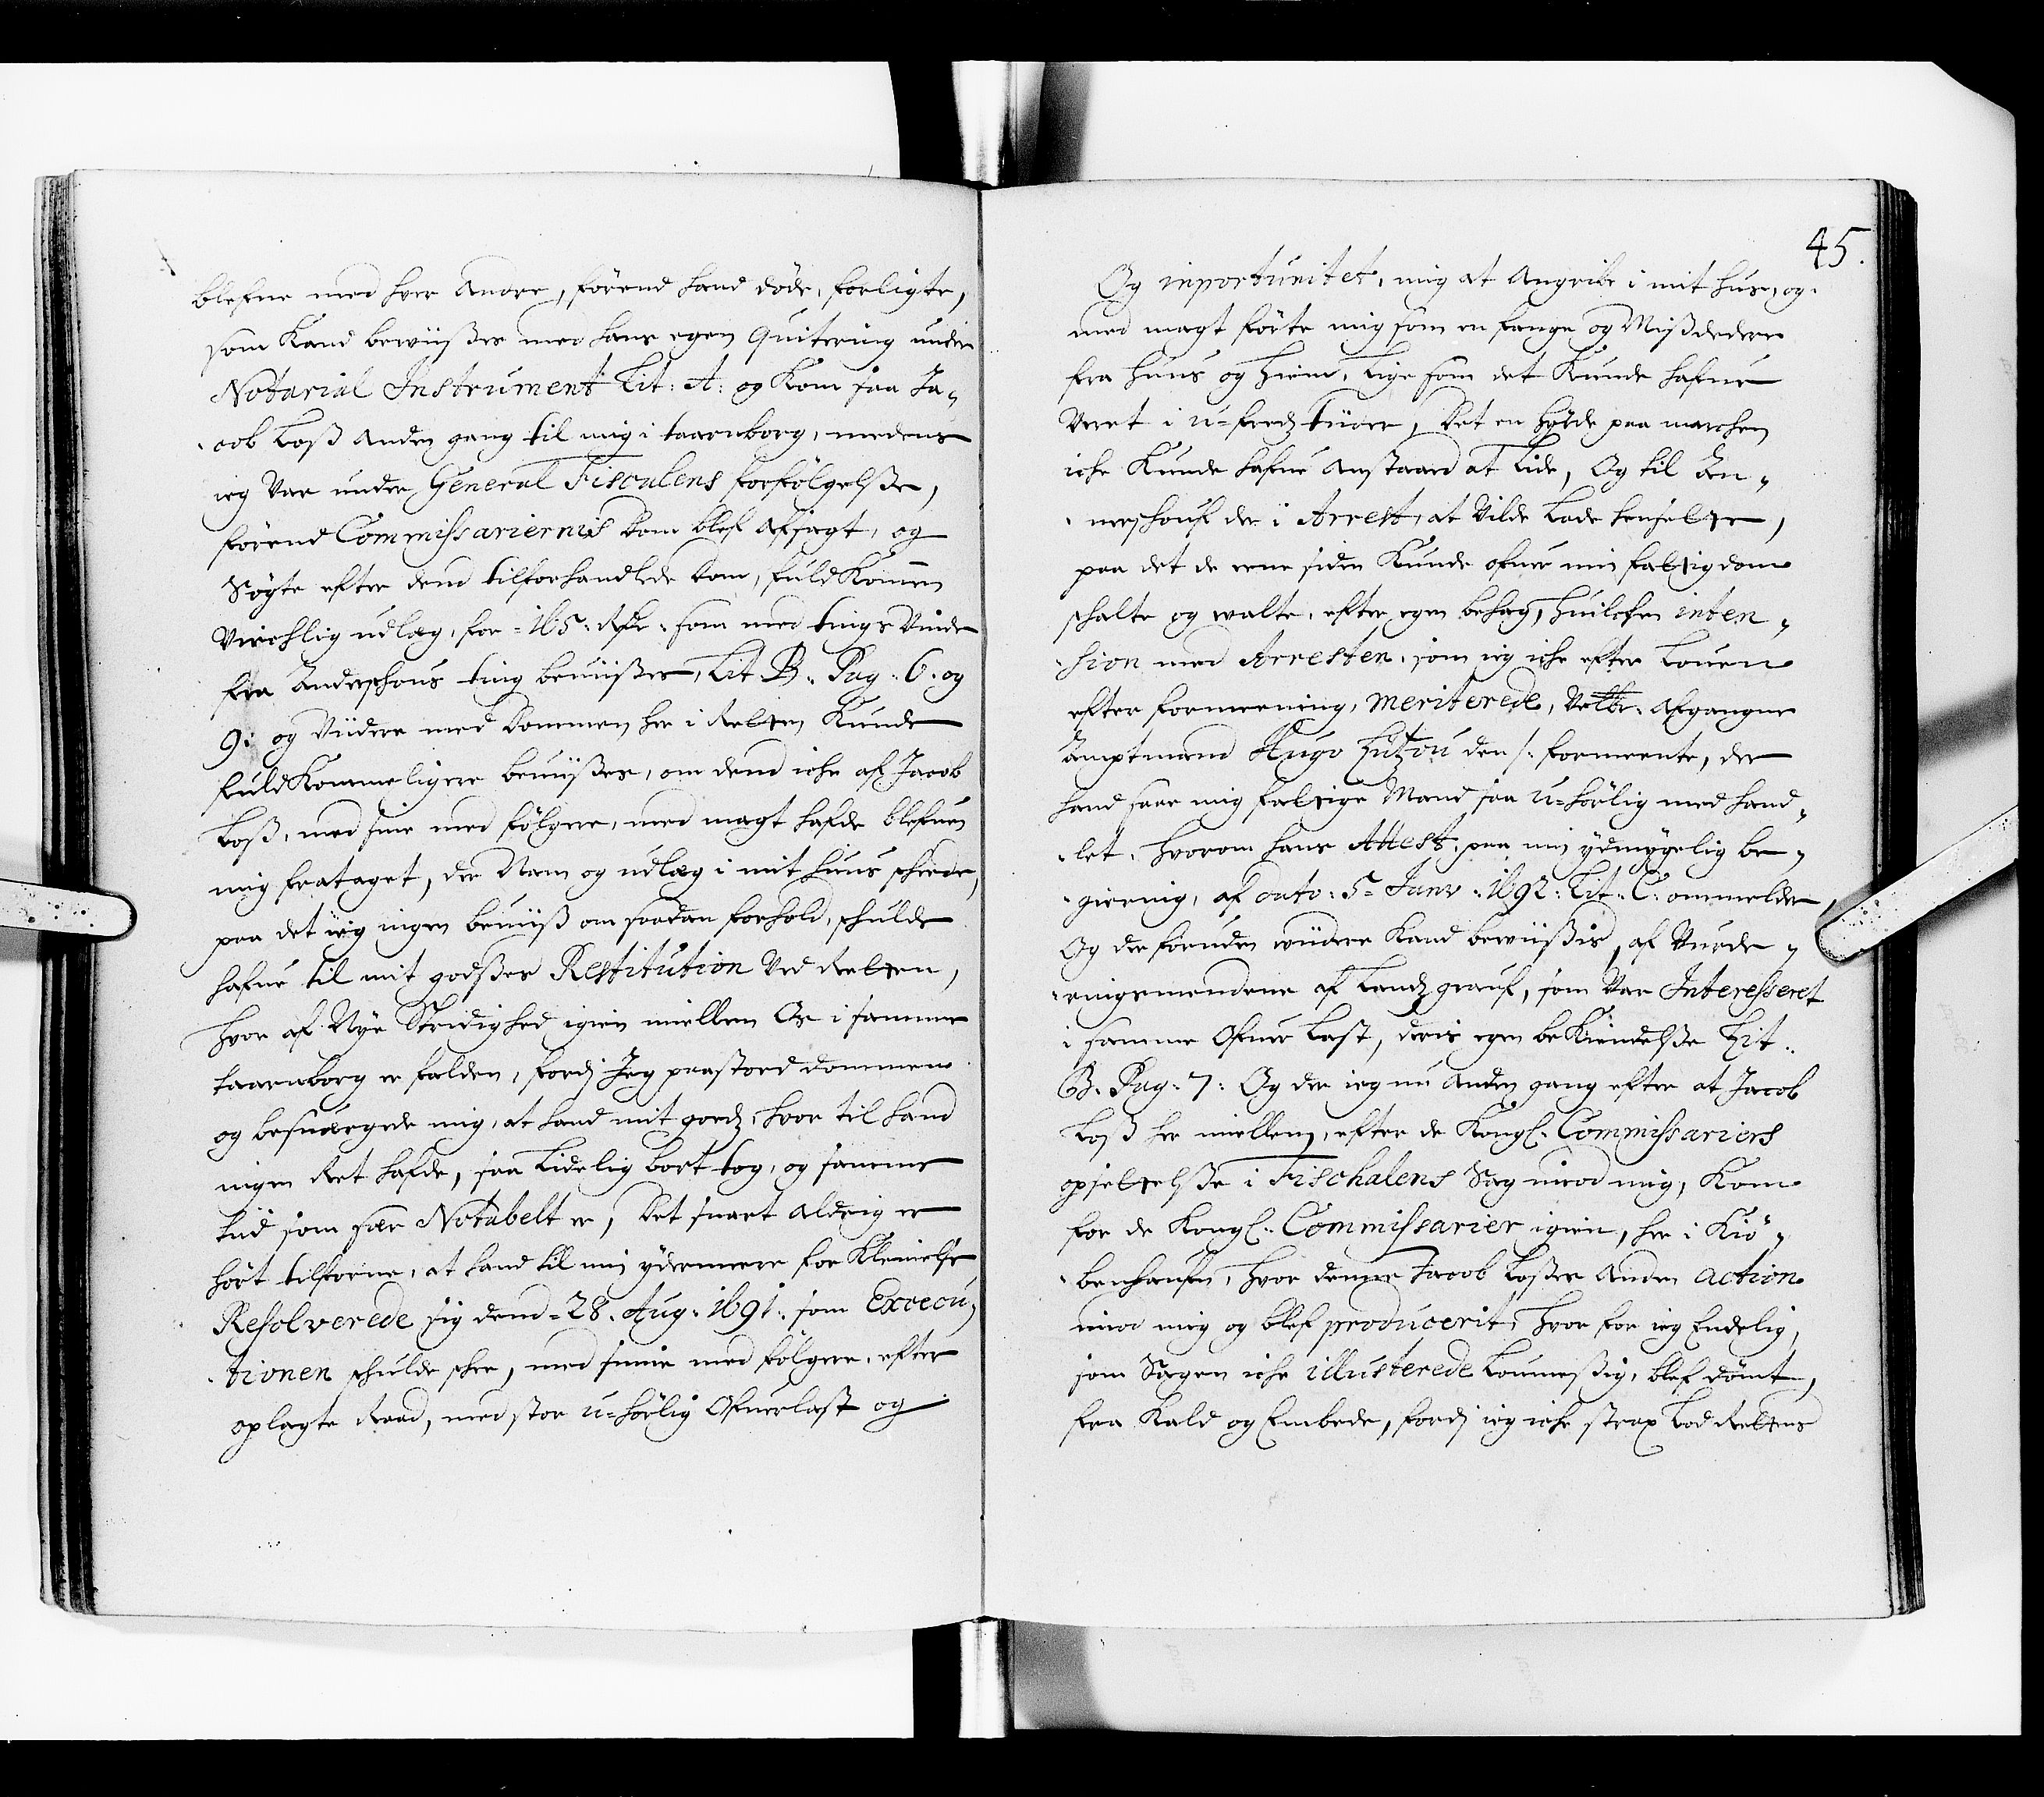 blefne med hver Andre, förend hand döde, forligte,
som Kand beviißes med hans egen Quitering under
Notarial Instrument Lit: A: og Kom saa Ja„
cob Loß anden gang til mig i taarnborg, medens
ieg Var under General Fiscalens forfölgelße,
förend Commissariernis Dom blef afsagt, og
Sögte efter dend tilforhandlede Dom, fuldKommen
Virchlig udlæg, for = 165: Rdr: som med tings Vinde
fra Anderschous ting beviißes, Lit B. Pag. 6. og
9: og Viidere med Dommen her i Retten Kunde
fuldKommeligere beviißes, om dend iche af Jacob
Loß, med sine med fölgere, med magt hafde blefven
mig frataget, der Nam og udlæg i mit huus scheede,
paa det ieg ingen beviiß om saadan forhold, schulde
hafve til mit godßes Restitution Ved Retten,
hvor af Nye Stridighed igien mellem Os i samme
taarnborg er falden, fordj Jeg paastoed dommen
og besværgede mig, at hand mit goedz, hvor til hand
ingen Ret hafde, saa Lidelig bort tog, og samme
tiid som sær Notabelt er, Det snart Aldrig er
hört tilforne, at hand til min ydermere for Kleinelse
Resolverede sig dend = 28. Aug: 1691: som Execu„
tionen schulde schee, med sinne med fölgere, efter
oplagte Raad, med stor u=hörlig Ofverlast og
45.
Og inportunitet, mig at Angribe i mit huus, og
med magt förte mig som en fange og Mißdedere
fra huus og hiem, Lige som det Kunde hafve
Veret i u=fredz tiider, Det en hylde paa marchen
iche Kunde hafve Anstaaed at Lide, Og til An„
verschouf der i Arrest, at Vilde Lade hensette,
paa det de eene siden Kunde ofver min fattigdom
schalte og walte, efter egen behag, huilchen inten„
sion med Arresten, som ieg iche efter Loven
efter formeening, meriterede, Velbr: Afgangne
Amptmand Hugo Lützou den /: formeente, der
hand saae mig fattige Mand saa u=hörlig med hand„
let, hvorom hans Attest, paa min ydmygelig be„
giering, af dato: 5= Janv: 1692: Lit: C: ommelder,
Og der foruden wiidere Kand bewiißis, af Vurde„
ringsmendene af Landzgrauf, som Var Interesseret
i samme Ofver Last, deris egen beKiendelße Lit:
B. Pag: 7: Og der ieg nu Anden gang efter at Jacob
Loß her mellem, efter de Kongl. Commissariers
opsettelße i Fischalens Sag imod mig, Kom
for de Kongl: Commissarier igien, her i Kiö„
benhaufn, hvor denne Jacob Loßes Anden action
imod mig og blef producerit, hvor for ieg Endelig,
som Sagen iche illusterede Loumeßig, blef dömt,
fra Kald og Embede, fordj ieg iche strax Lod Rettens